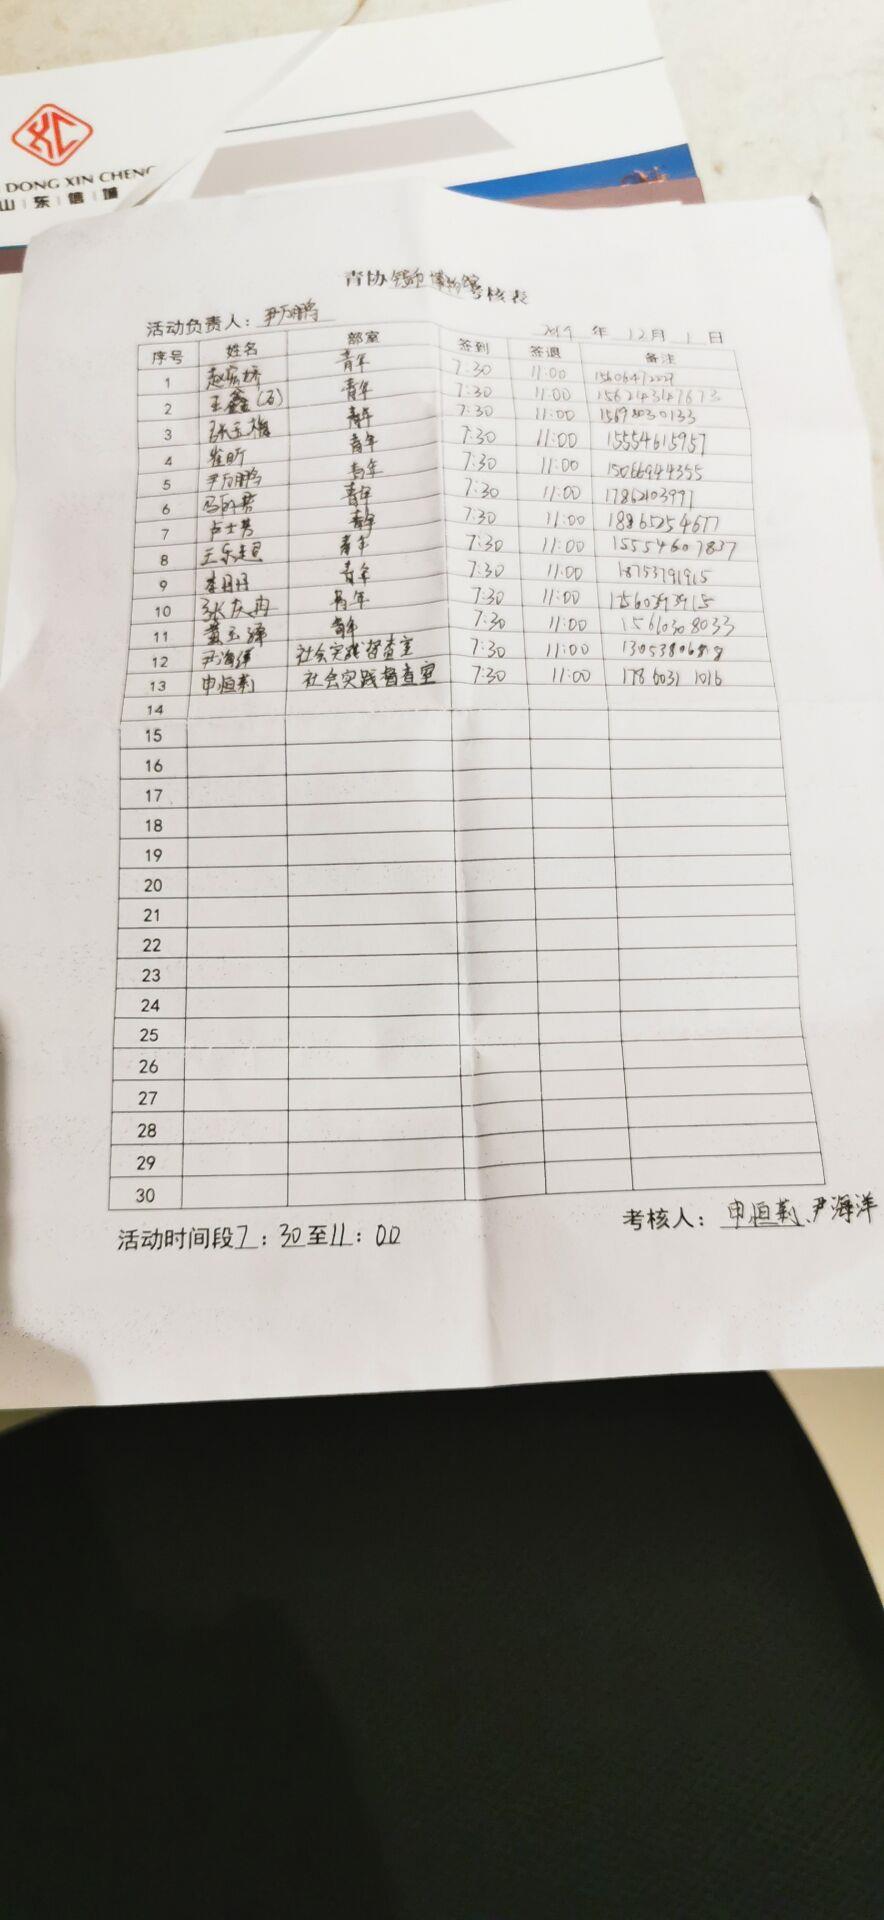 XC
DONG XIN CHENG
山 东 信 诚
青协钱币博物馆考核表
活动负责人：尹万鹏 2019 年 12 月 1 日
序号 姓名 部室 签到 签退 备注
1 青年 7:30 11:00
2 王鑫(石) 青年 7:30 11:00
3 张玉梅 青年 7:30 11:00 15698030133
4 崔昕 青年 7:30 11:00 15554615957
5 尹万鹏 青年 7:30 11:00 15066944355
6 青年 7:30 11:00 17862103991
7 卢士芳 青年 7:30 11:00 18865254677
8 青年 7:30 11:00 15554607837
9 李丹丹 青年 7:30 11:00 18753791915
10 张友冉 青年 7:30 11:00
11 黄玉泽 青年 7:30 11:00 15610308033
12 尹海洋 社会实践督查室 7:30 11:00
13 申恒莉 社会实践督查室 7:30 11:00 17860311016
14
15
16
17
18
19
20
21
22
23
24
25
26
27
28
29
30
考核人：申恒莉、尹海洋
活动时间段7：30至11：00